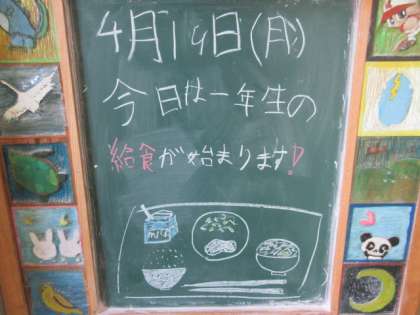 4月14日(月)
今日は一年生の
給食が始まります!
milk